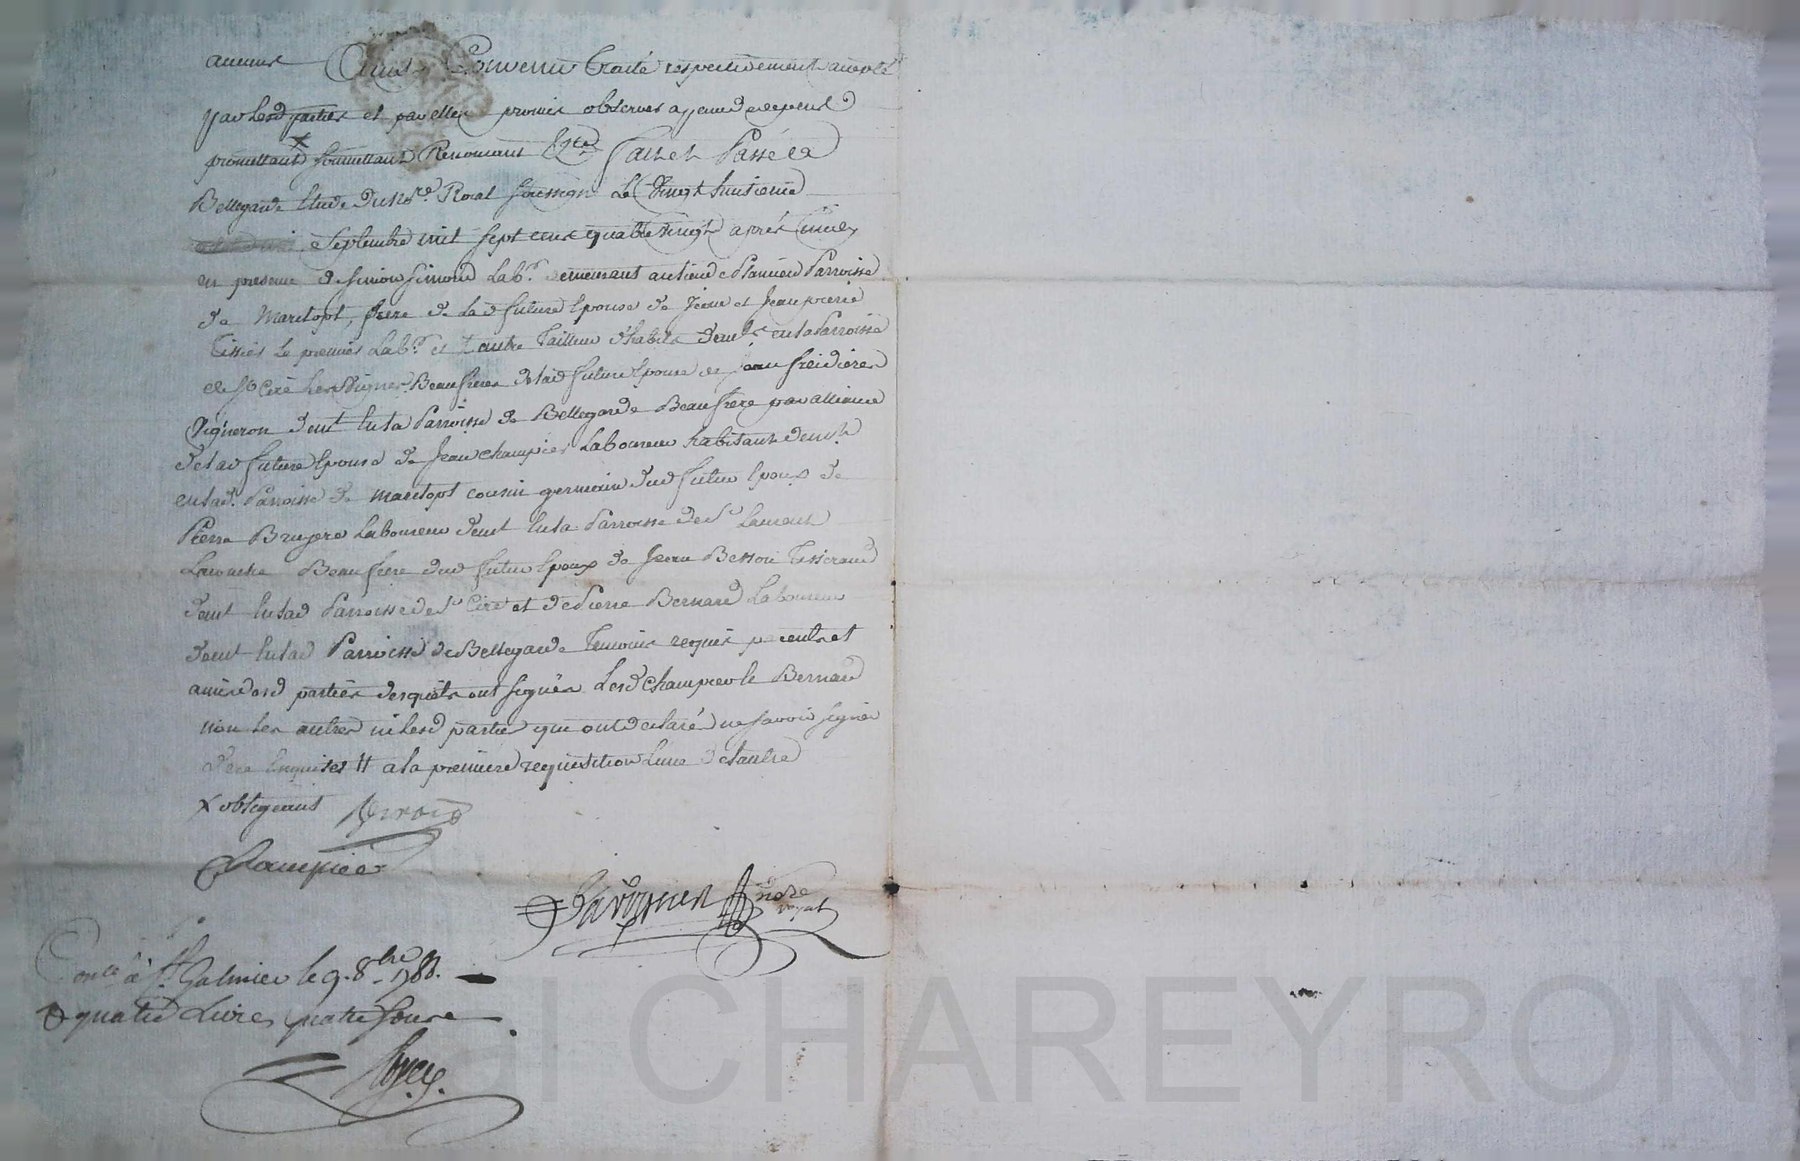 aucune Ainsi Convenu Traité respectivement accepté
par lesd parties et par elles promis observer a peine de depend
promettant x soumettant Renoncant &ce fait et Passé a
Bellegarde Etude du Nre Royal soussigné Le Vingt huitieme
Septembre mil sept cens quatre vingt après midy
en presence de Simon Simond Lab.r demeurant au lieu de Parroisse
de Maretopt, frere de La d future Epouse de Jean et Jean pierre
Tissier le premier Lab.r et L'autre Tailleur d'habits dem.ts en la Parroisse
de St Ciré Les Vignes Beaufreres de lad future Epouse de Jean freidiere
Vigneron dem.t en la Parroisse de Bellegarde Beaufrere par alliance
de lad future Epouse de Jean champier Laboureur habitant dem.t
en lad. Parroisse de maretopt cousin germain dud futur Epoux de
Pierre Bruyere Laboureur dem.t en la Parroisse de St Laurent
Laconche Beaufrere dud futur Epoux de Jean Besson Tisserand
dem.t en lad Parroisse de St Ciré et de Pierre Bernard Laboureur
dem.t en lad Parroisse de Bellegarde Temoins requis parents et
amis desd parties desquels ont signés Lesd champier le Bernard
non les autres ni lesd parties qui ont declaré ne savoir signer
de ce Enquises # a la premiere requisition L'une de L'autre
x obligeant
Champier
Nore royal
Con.lé à St. Galmier le 9. 8bre 178
R quatre Livres quatre sous
al CHAREYRON